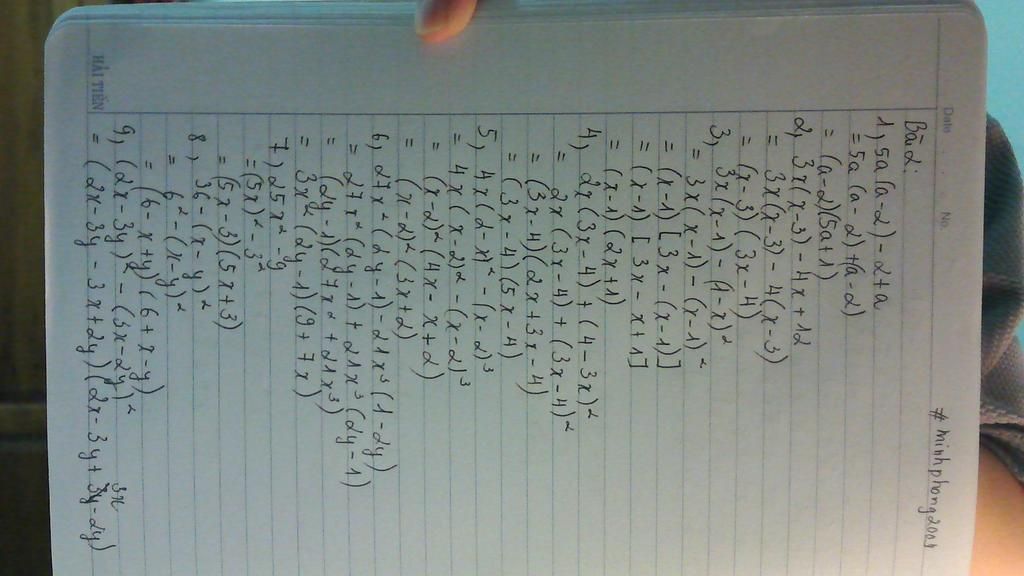 Date No.
# minhphong2001
Bài 2:
1, 5a (a - 2) - 2 + a
= 5a (a - 2) + (a - 2)
= (a - 2)(5a + 1)
2, 3x (x - 3) - 4x + 12
= 3x (x - 3) - 4 (x - 3)
= (x - 3) (3x - 4)
3, 3x (x - 1) - (1 - x)²
= 3x (x - 1) - (x - 1)²
= (x - 1) [3x - (x - 1)]
= (x - 1) [3x - x + 1]
= (x - 1) (2x + 1)
4, 2x (3x - 4) + (4 - 3x)²
= 2x (3x - 4) + (3x - 4)²
= (3x - 4) (2x + 3x - 4)
= (3x - 4) (5x - 4)
5, 4x (2 - x)² - (x - 2)³
= 4x (x - 2)² - (x - 2)³
= (x - 2)² (4x - x + 2)
= (x - 2)² (3x + 2)
6, 27x² (2y - 1) - 21x³ (1 - 2y)
= 27x² (2y - 1) + 21x³ (2y - 1)
= (2y - 1) (27x² + 21x³)
= 3x² (2y - 1) (9 + 7x)
7, 25x² - 9
= (5x)² - 3²
= (5x - 3) (5x + 3)
8, 36 - (x - y)²
= 6² - (x - y)²
= (6 - x + y) (6 + x - y)
9, (2x - 3y)² - (3x - 2y)²
= (2x - 3y - 3x + 2y) (2x - 3y + 3x - 2y)
HẢI TIẾN